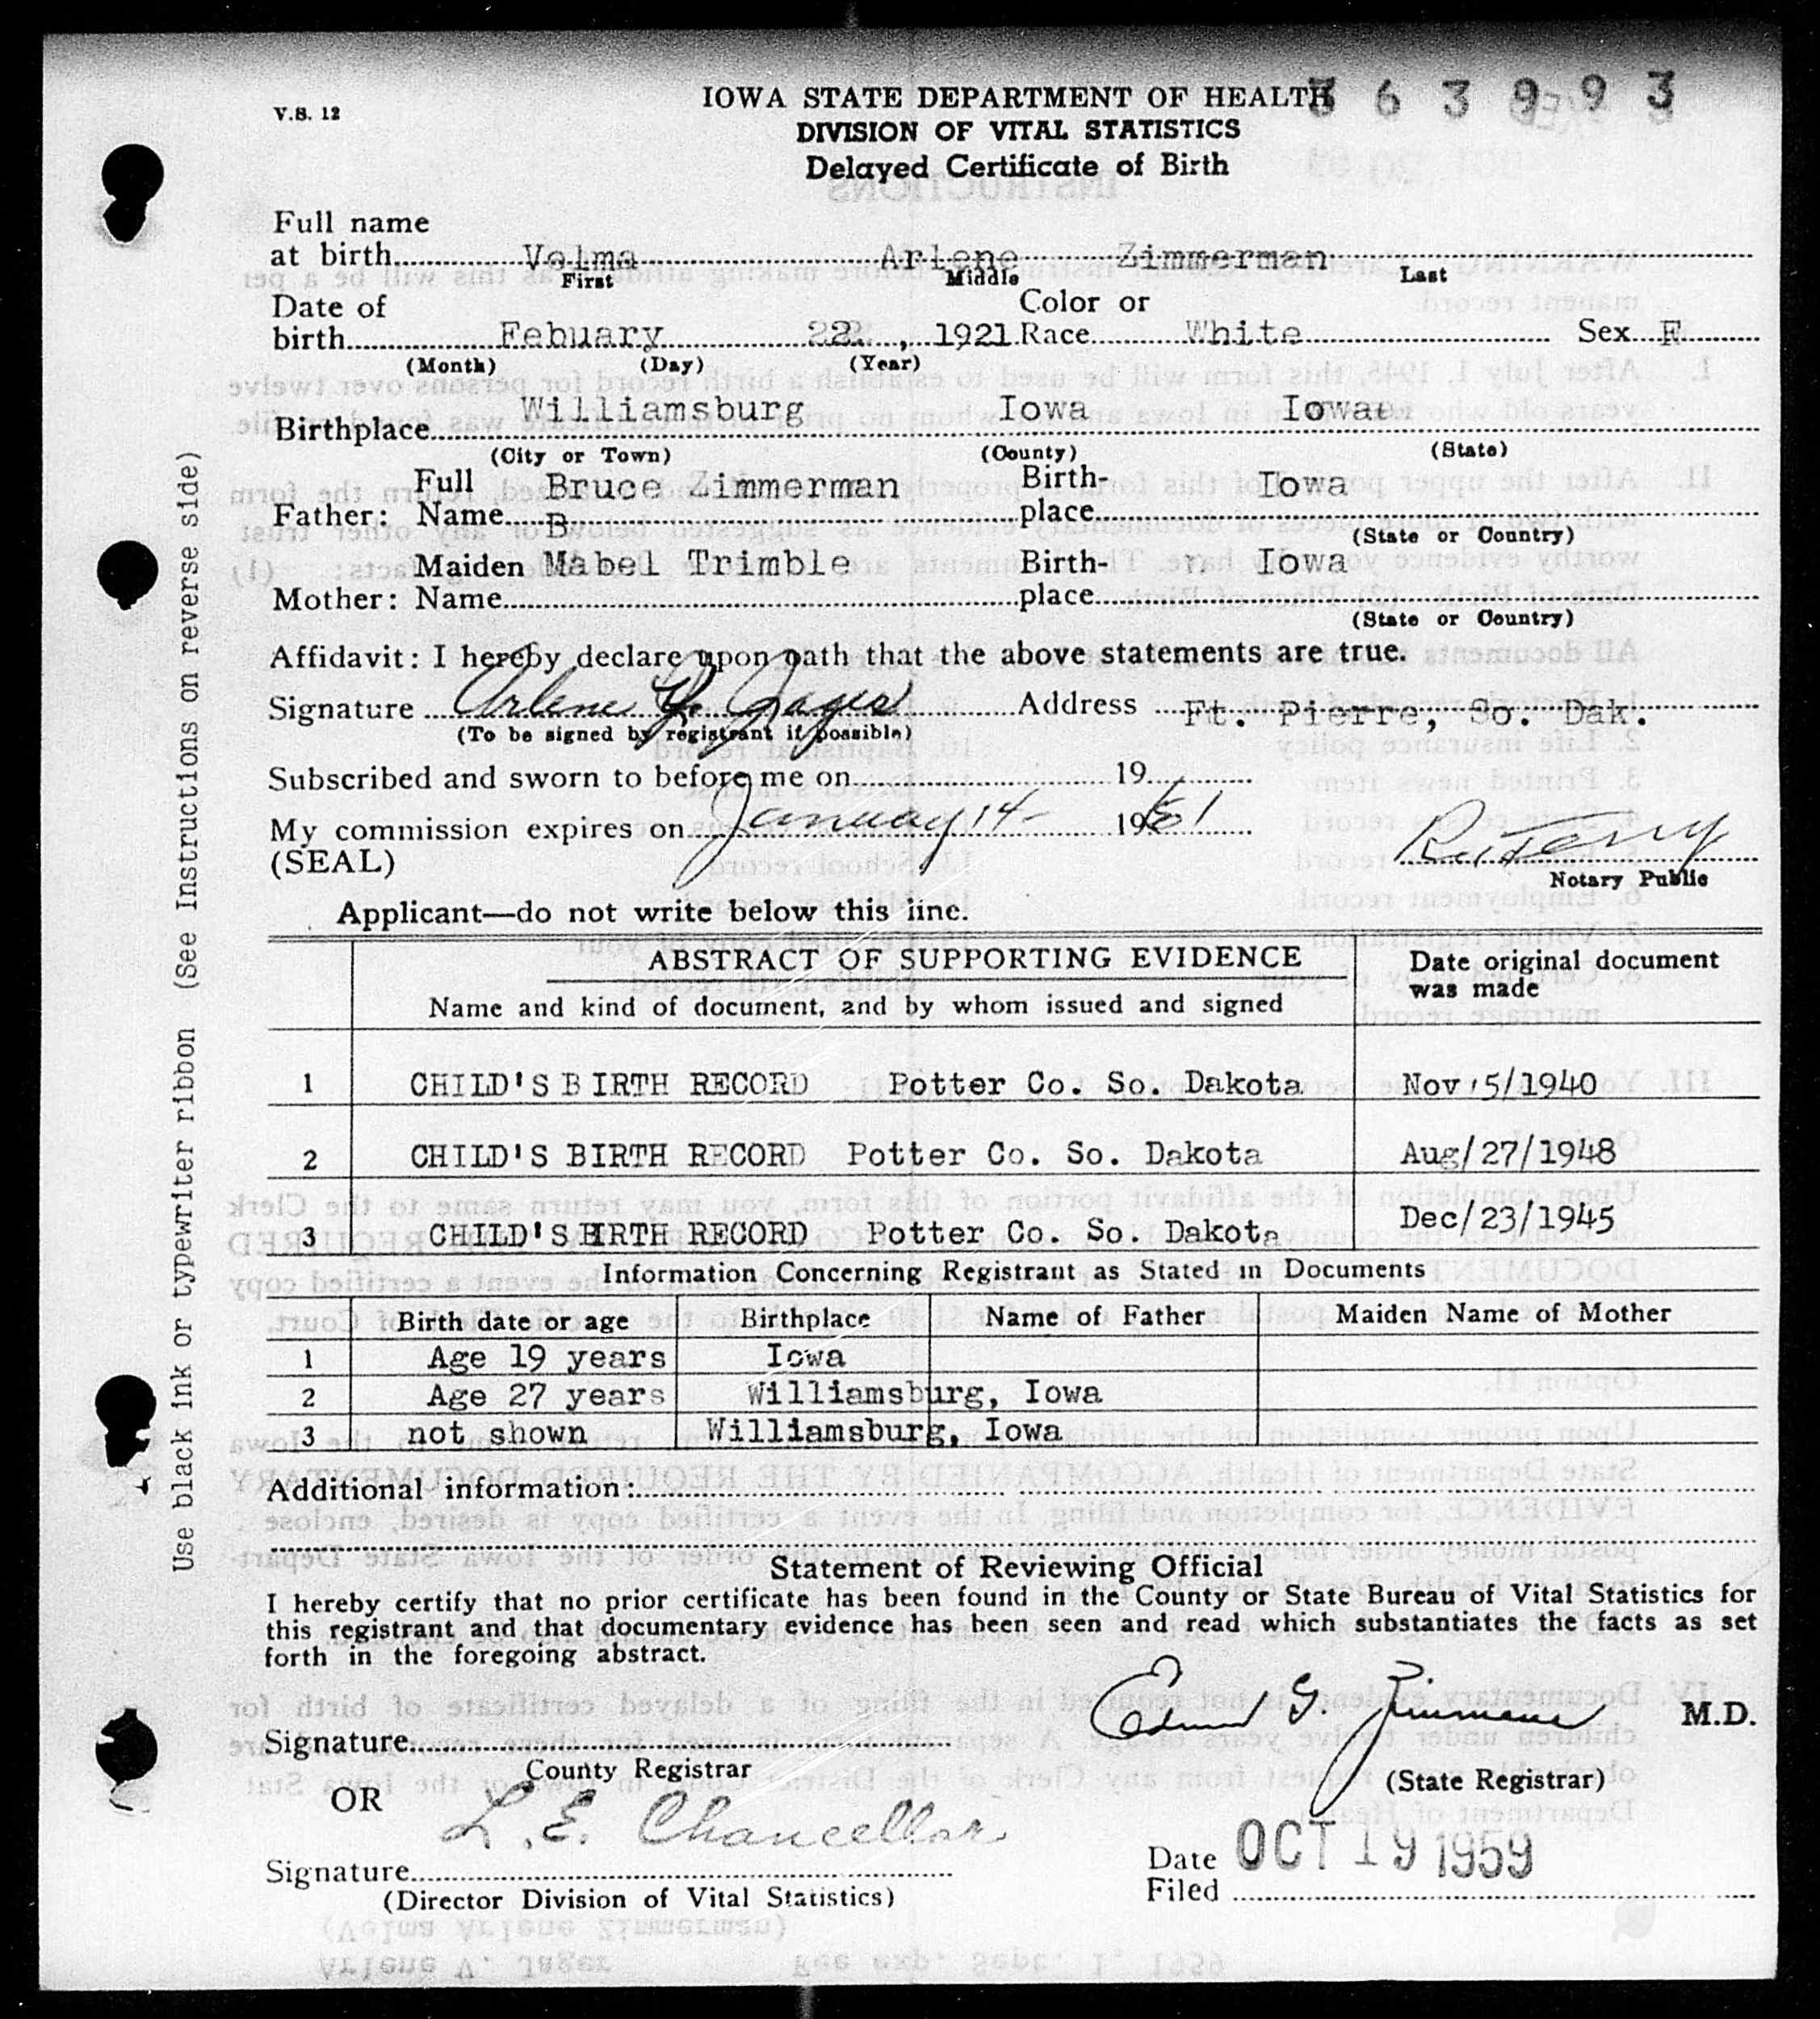 V.S. 12
IOWA STATE DEPARTMENT OF HEALTH 363993
DIVISION OF VITAL STATISTICS
Delayed Certificate of Birth
Full name
at birth Velma Arlene Zimmerman
First Middle Last
Date of Color or
birth Febuary 22, 1921 Race White Sex F
(Month) (Day) (Year)
Williamsburg Iowa Iowa
Birthplace
(City or Town) (County) (State)
Full Bruce Zimmerman Birth- Iowa
Father: Name B place
(State or Country)
Maiden Mabel Trimble Birth- Iowa
Mother: Name place
(State or Country)
Affidavit: I hereby declare upon oath that the above statements are true.
Signature Arlene V. Jager Address Ft. Pierre, So. Dak.
(To be signed by registrant if possible)
Subscribed and sworn to before me on 19
My commission expires on January 14 - 1961
(SEAL)
Notary Public
Applicant—do not write below this line.
ABSTRACT OF SUPPORTING EVIDENCE Date original document
was made
Name and kind of document, and by whom issued and signed
1 CHILD'S BIRTH RECORD Potter Co. So. Dakota Nov 5/1940
2 CHILD'S BIRTH RECORD Potter Co. So. Dakota Aug/27/1948
3 CHILD'S BIRTH RECORD Potter Co. So. Dakota Dec/23/1945
Information Concerning Registrant as Stated in Documents
Birth date or age Birthplace Name of Father Maiden Name of Mother
1 Age 19 years Iowa
2 Age 27 years Williamsburg, Iowa
3 not shown Williamsburg, Iowa
Additional information:
Statement of Reviewing Official
I hereby certify that no prior certificate has been found in the County or State Bureau of Vital Statistics for
this registrant and that documentary evidence has been seen and read which substantiates the facts as set
forth in the foregoing abstract.
Signature Edmund G. Zimmerer M.D.
County Registrar (State Registrar)
OR L. E. Chancellor
Signature Date Filed OCT 19 1959
(Director Division of Vital Statistics)
Use black ink or typewriter ribbon (See Instructions on reverse side)
(Velma Arlene Zimmerman)
Arlene V. Jager